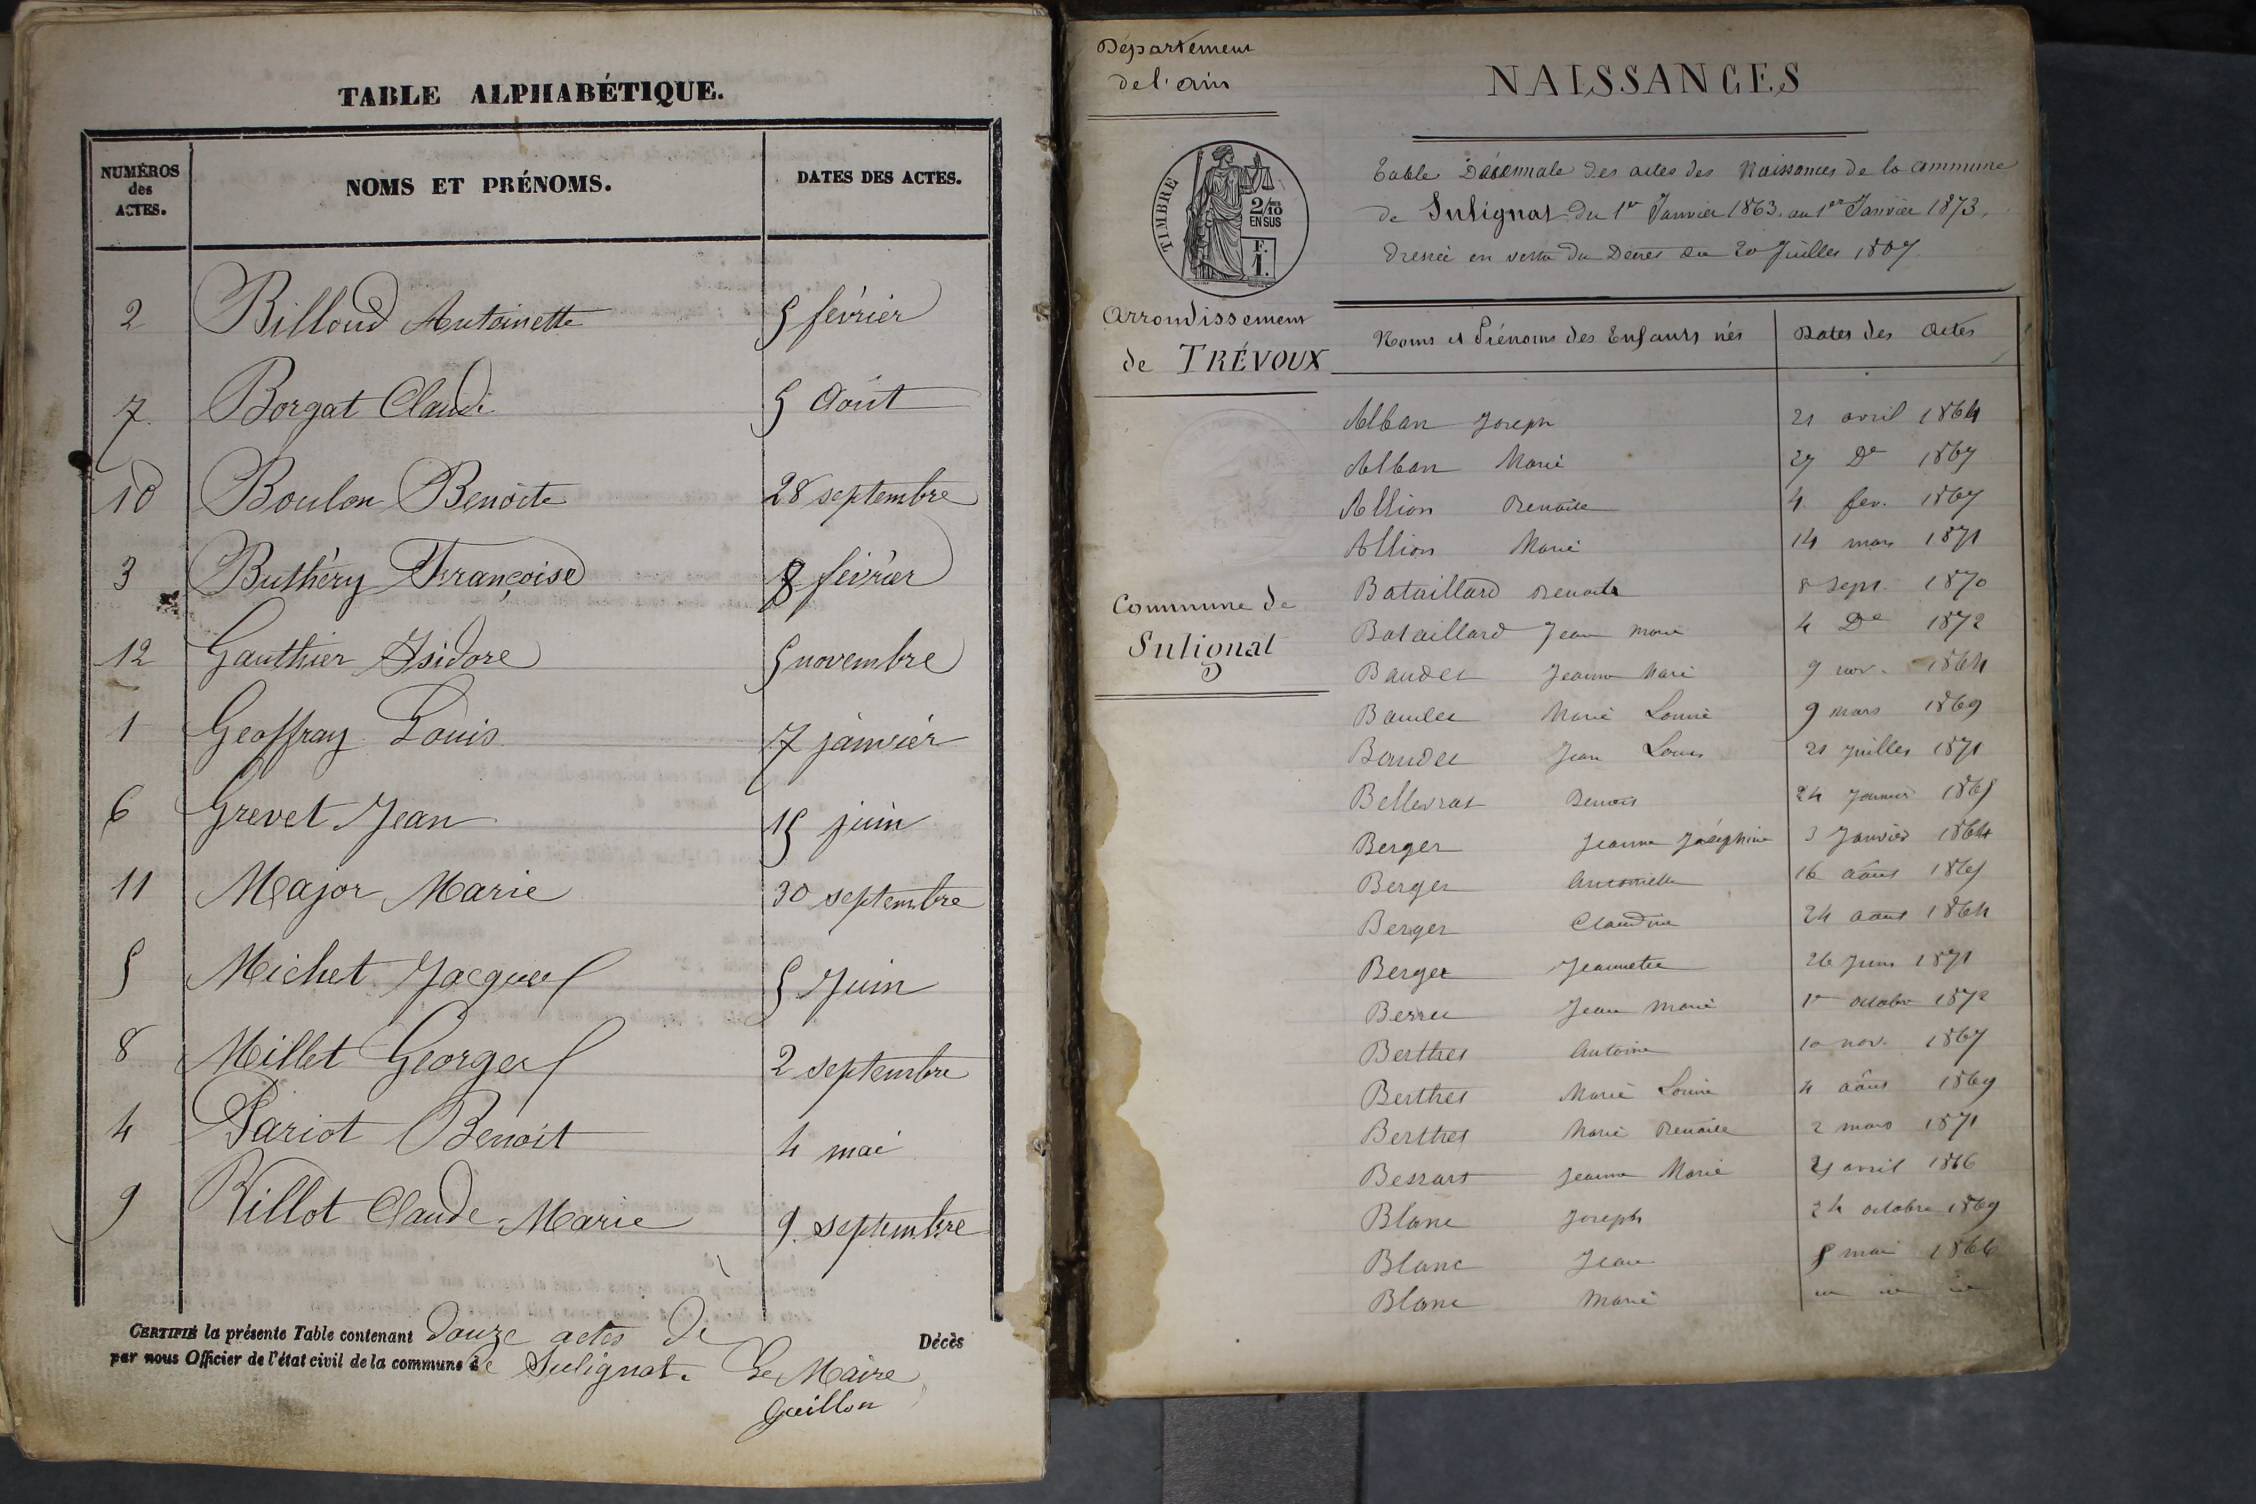 TABLE ALPHABÉTIQUE.
NUMÉROS des ACTES. NOMS ET PRÉNOMS. DATES DES ACTES.
2 Billoud Antoinette 5 février
7 Borgat Claude 5 Août
10 Boulon Benoite 28 septembre
3 Buthéry Françoise 8 février
12 Gauthier Isidore 5 novembre
1 Geoffray Louis 7 janvier
6 Grevet Jean 15 juin
11 Major Marie 30 septembre
5 Michet Jacques 5 Juin
8 Millet Georges 2 septembre
4 Pariot Benoit 4 mai
9 Villot Claude-Marie 9 septembre
CERTIFIÉ la présente Table contenant douze actes de Décès
par nous Officier de l'état civil de la commune de Sulignat. Le Maire
Guillon
Département
de l'ain
TIMBRE
2/10 EN SUS
F. 1.
Arrondissement
de TRÉVOUX
Commune de
Sulignat
NAISSANCES
Table Décennale des actes des Naissances de la commune
de Sulignat du 1er Janvier 1863 au 1er Janvier 1873,
dressée en vertu du Décret du 20 Juillet 1807.
Noms et Prénoms des Enfants nés Dates des Actes
Alban Joseph 21 avril 1864
Alban Marie 27 De 1867
Allion Benoite 4 fev. 1867
Allion Marie 14 mars 1871
Bataillard Benoite 8 Sept. 1870
Bataillard Jean Marie 4 De 1872
Baudet Jeanne Marie 9 nov. 1864
Baudet Marie Louise 9 mars 1869
Baudet Jean Louis 21 Juillet 1871
Bellevrat Benoit 24 Janvier 1865
Berger Jeanne Joséphine 3 Janvier 1864
Berger Antoinette 16 août 1865
Berger Claudine 24 août 1864
Berger Jeannette 26 Juin 1871
Jean Marie 1er octobre 1872
Berthet Antoine 10 nov. 1867
Berthet Marie Louise 4 août 1869
Berthet Marie Benoite 2 mars 1871
Jeanne Marie avril 1866
Blanc Joseph 24 octobre 1869
Blanc Jean 5 mai 1866
Blanc Marie